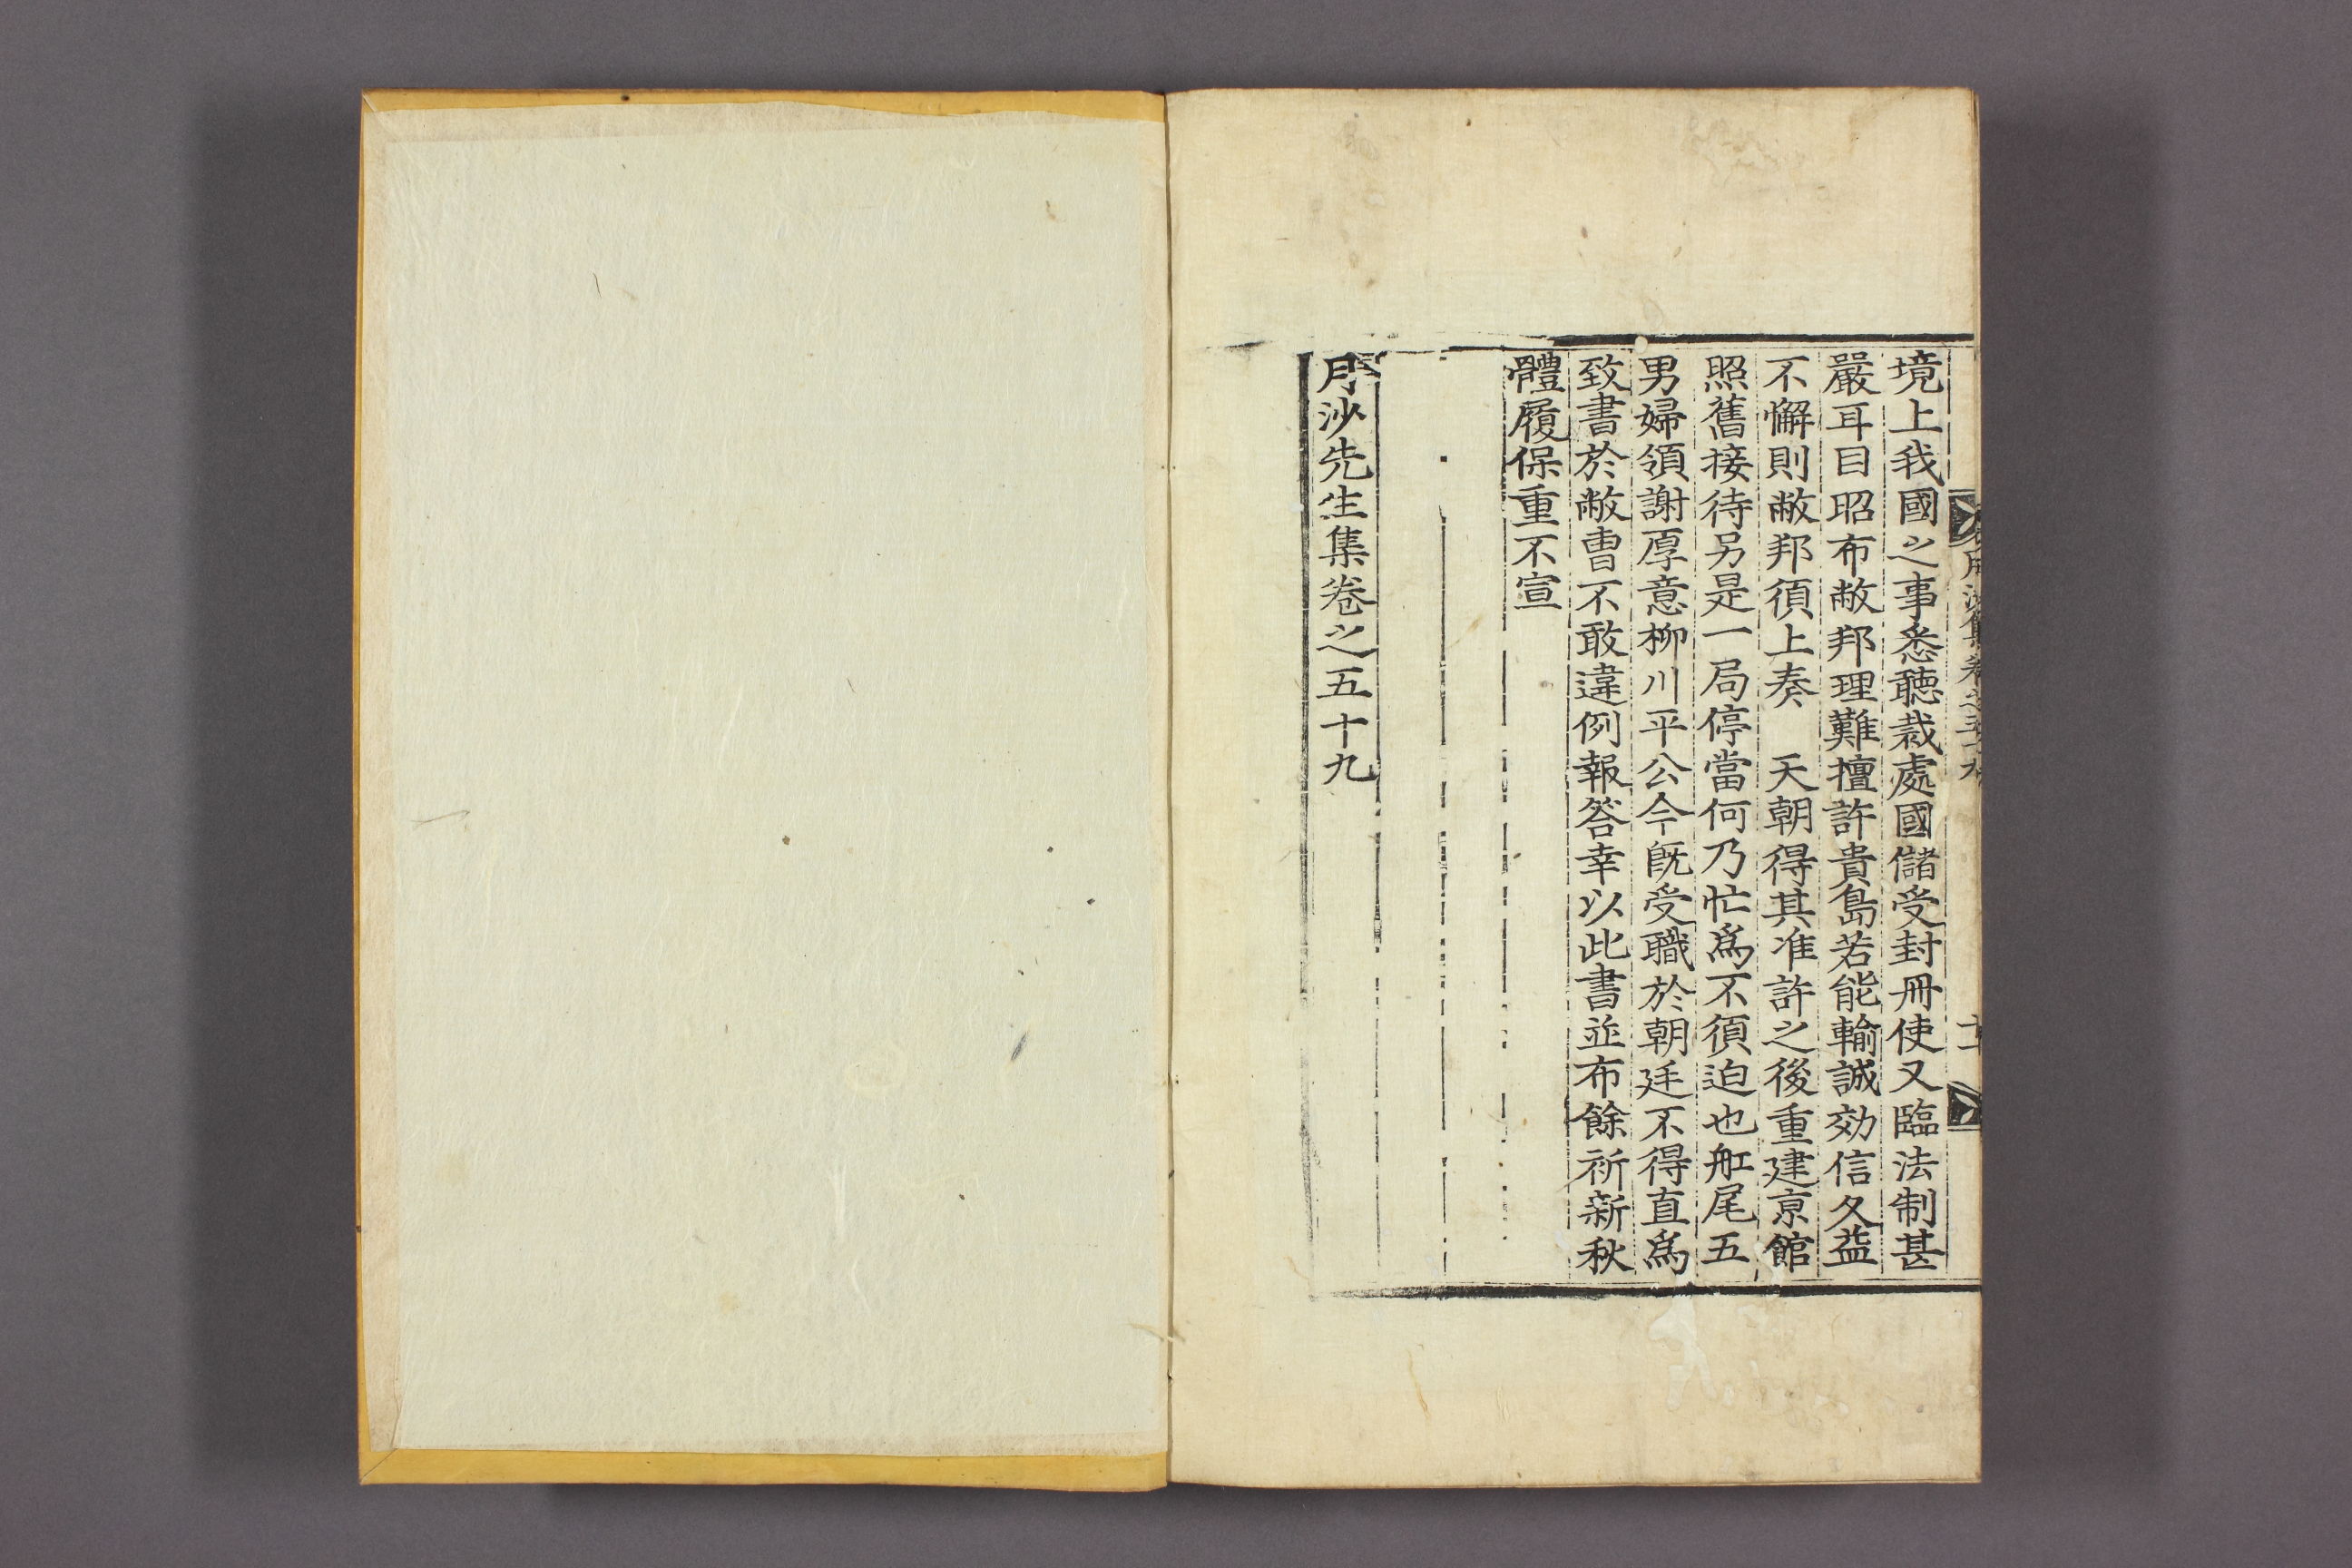 境上我國之事悉聽裁處國儲受封冊使又臨法制甚
嚴耳目昭布敝邦理難擅許貴島若能輸誠効信久益
不懈則敝邦須上奏　天朝得其准許之後重建京館
照舊接待另是一局停當何乃忙爲不須迫也舡尾五
男婦領謝厚意柳川平公今旣受職於朝廷不得直爲
致書於敝曹不敢違例報答幸以此書並布餘祈新秋
體履保重不宣
月沙先生集卷之五十九